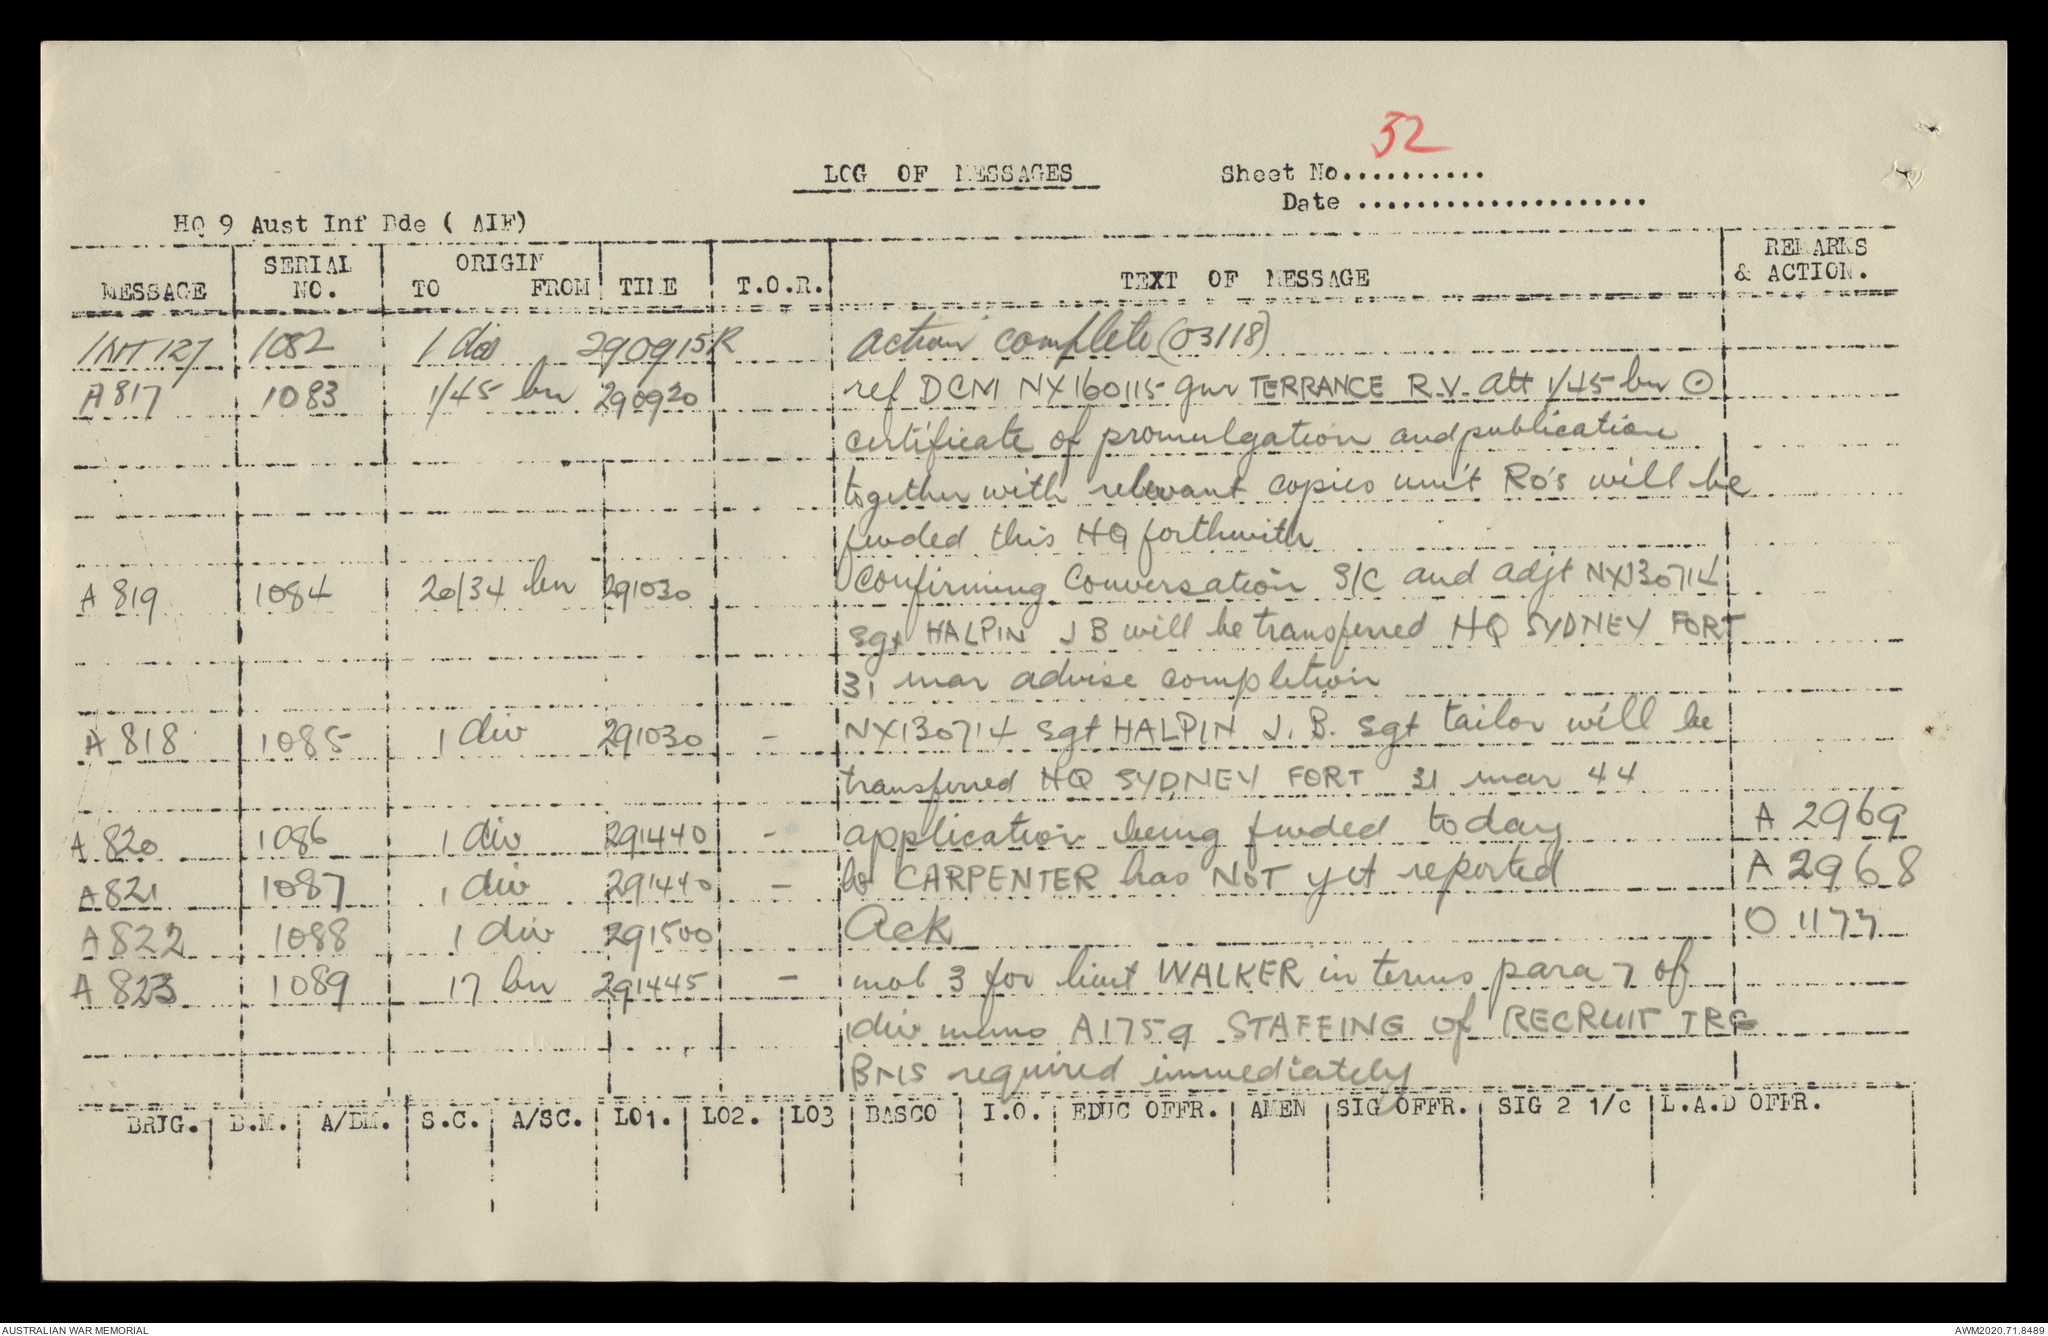 52
LOG OF MESSAGES Sheet No..........
Date .....................
HQ 9 Aust Inf Bde ( AIF)
MESSAGE SERIAL NO. ORIGIN TO FROM TIME T.O.R. TEXT OF MESSAGE REMARKS & ACTION.
INT 127 1082 1 div 290915R action complete (03118)
A 817 1083 1/45 bn 290920 ref DCM NX160115 gnr TERRANCE R.V. att 1/45 bn ⊙
certificate of promulgation and publication
together with relevant copies unit Ro's will be
fwded this HQ forthwith
A 819 1084 20/34 bn 291030 Confirming Conversation S/C and adjt NX130714
Sgt HALPIN J B will be transferred HQ SYDNEY FORT
31 mar advise completion
A 818 1085 1 div 291030 - NX130714 Sgt HALPIN J. B. Sgt tailor will be
transferred HQ SYDNEY FORT 31 mar 44
A 820 1086 1 div 291440 - application being fwded today A 2969
A 821 1087 1 div 291440 - CARPENTER has NOT yet reported A 2968
A 822 1088 1 div 291500 Ack O 1177
A 823 1089 17 bn 291445 - mob 3 for lieut WALKER in terms para 7 of
1 div memo A1759 STAFFING of RECRUIT TRG
BNS required immediately
BRIG. B.M. A/BM. S.C. A/SC. LO1. LO2. LO3 BASCO I.O. EDUC OFFR. AMEN SIG OFFR. SIG 2 1/c L.A.D OFFR.
AUSTRALIAN WAR MEMORIAL AWM2020.71.8489